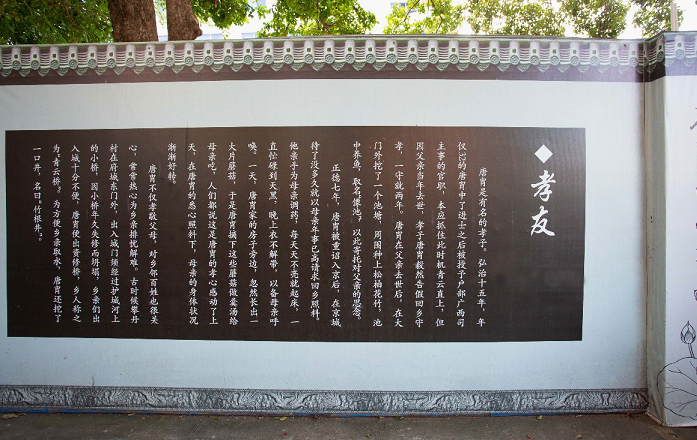 ◆孝友
唐胄是有名的孝子。弘治十五年，年
仅32的唐胄中了进士之后被授予户部广西司
主事的官职，本应抓住此时机青云直上，但
因父亲当年去世，孝子唐胄毅然告假回乡守
孝，一守就两年。唐胄在父亲去世后，在大
门外挖了一个池塘，周围种上松柏花竹，池
中养鱼，取名傃池，以此寄托对父亲的思念。
正德七年，唐胄被重诏入京后，在京城
待了没多久就以母亲年事已高请求回乡照料。
他亲手为母亲调药，每天天不亮就起床，一
直忙碌到天黑，晚上衣不解带，以备母亲呼
唤。一天，唐胄家的房子旁边，忽然长出一
大片蘑菇，于是唐胄摘下这些蘑菇做羹汤给
母亲吃，人们都说这是唐胄的孝心感动了上
天，在唐胄的悉心照料下，母亲的身体状况
渐渐好转。
唐胄不仅孝敬父母，对乡邻百姓也很关
心，常常热心为乡亲排忧解难。古时候攀丹
村在府城东门外，出入城门须经过护城河上
的小桥，因小桥年久失修而坍塌，乡亲们出
入城十分不便，唐胄便出资修桥，乡人称之
为“青云桥”。为方便乡亲取水，唐胄还挖了
一口井，名曰“竹根井”。